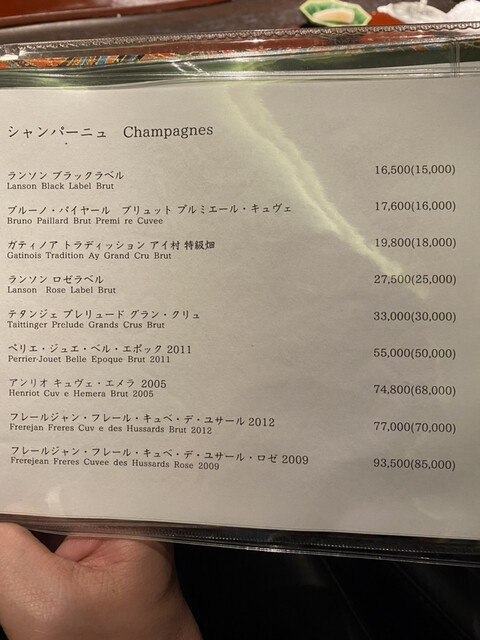 シャンパーニュ Champagnes
ランソン ブラックラベル 16,500(15,000)
Lanson Black Label Brut
ブルーノ・パイヤール ブリュット プルミエール・キュヴェ 17,600(16,000)
Bruno Paillard Brut Premi re Cuvee
ガティノア トラディッション アイ村 特級畑 19,800(18,000)
Gatinois Tradition Ay Grand Cru Brut
ランソン ロゼラベル 27,500(25,000)
Lanson Rose Label Brut
テタンジェ プレリュード グラン・クリュ 33,000(30,000)
Taittinger Prelude Grands Crus Brut
ペリエ・ジュエ・ベル・エポック 2011 55,000(50,000)
Perrier-Jouet Belle Epoque Brut 2011
アンリオ キュヴェ・エメラ 2005 74,800(68,000)
Henriot Cuv e Hemera Brut 2005
フレールジャン・フレール・キュベ・デ・ユサール 2012 77,000(70,000)
Frerejan Freres Cuv e des Hussards Brut 2012
フレールジャン・フレール・キュベ・デ・ユサール・ロゼ 2009 93,500(85,000)
Frerejean Freres Cuvee des Hussards Rose 2009